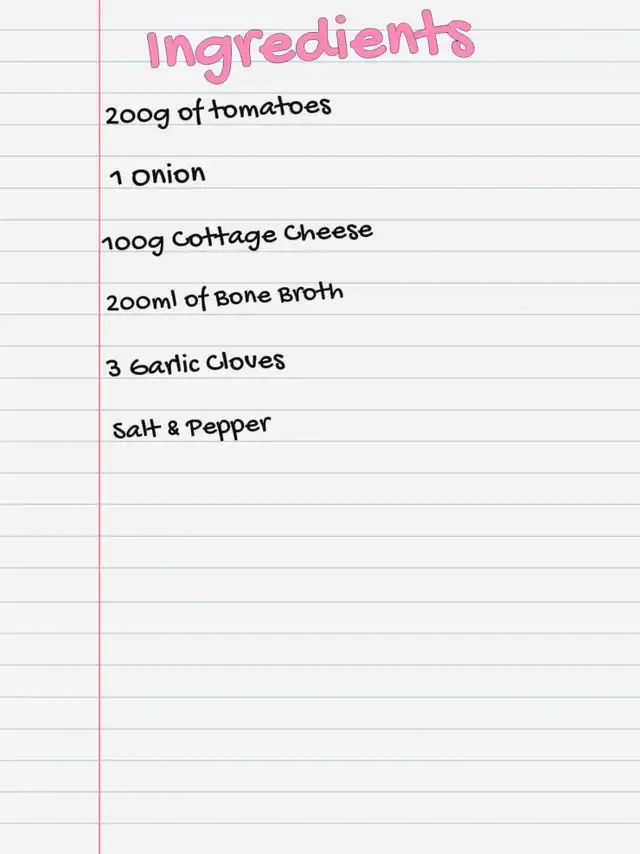 Ingredients
200g of tomatoes
1 Onion
100g Cottage Cheese
200ml of Bone Broth
3 Garlic Cloves
Salt & Pepper